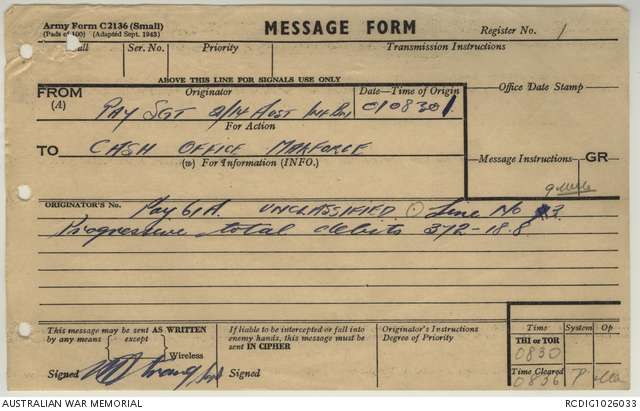 Army Form C2136 (Small)
(Pads of 100) (Adapted Sept. 1943)
MESSAGE FORM
Register No. 1
Call
Ser. No.
Priority
Transmission Instructions
ABOVE THIS LINE FOR SIGNALS USE ONLY
FROM
(A)
Originator
PAY SGT 2/14 AUST INF BN
Date—Time of Origin
010830
Office Date Stamp
For Action
TO
CASH OFFICE MORFORCE
(W) For Information (INFO.)
Message Instructions
GR
ORIGINATOR'S No. Pay 61A. UNCLASSIFIED Line No 3
Progressive total debits 372-18.8
This message may be sent AS WRITTEN
by any means except Wireless
Signed
If liable to be intercepted or fall into
enemy hands, this message must be
sent IN CIPHER
Signed
Originator's Instructions
Degree of Priority
Time
System
Op
THI or TOR
0830
Time Cleared
0836
AUSTRALIAN WAR MEMORIAL
RCDIG1026033